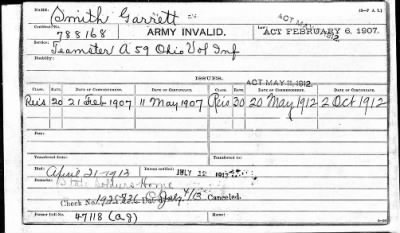 Smith Garrett
(3-7 A I.)
ACT MAY 11, 1912.
Certificate No.
788168
ARMY INVALID.
ACT FEBRUARY 6, 1907.
Service: Teamster A 59 Ohio Vol Inf
Disability:
ISSUES.
ACT MAY 11, 1912.
CLASS. RATE. DATE OF COMMENCEMENT. DATE OF CERTIFICATE. CLASS. RATE. DATE OF COMMENCEMENT. DATE OF CERTIFICATE.
Reis 20 21 Feb 1907 11 May 1907 Reis 30 20 May 1912 2 Oct 1912
From:
Transferred from:
Died: April 21-1913 Bureau notified: JULY 12 1913
State Soldiers Home
Check No. 1925836 Dat July 4/13 Canceled.
Former Roll No.
47118 (a.g)